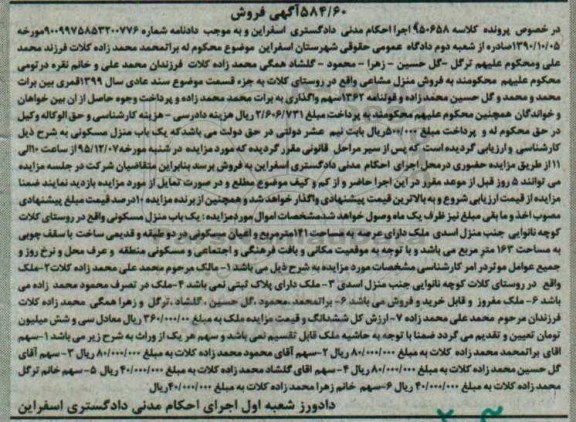 ۵۸۴/۶۰آگهی فروش
در خصوص پرونده کلاسه ۹۵۰۶۵۸ اجرا احکام مدنی دادگستری اسفراین و به موجب دادنامه شماره ۹۰۰۹۹۷۵۸۵۳۲۰۰۷۷۶مورخه
۱۳۹۰/۱۰/۰۵صادره از شعبه دوم دادگاه عمومی حقوقی شهرستان اسفراین موضوع محکوم له براتمحمد محمد زاده کلات فرزند محمد
علی ومحکوم علیهم ترگل -گل حسین - زهرا - محمود - گلشاد همگی محمد زاده کلات فرزندان محمد علی و خانم نقره درتومی
محکوم علیهم محکومند به فروش منزل مشاعی واقع در روستای کلات به جزء قسمت موضوع سند عادی سال ۱۳۹۹قمری بین برات
محمد و محمد و گل حسین محمد زاده و قولنامه ۱۳۶۲سهم واگذاری به برات محمد محمد زاده و پرداخت وجوه حاصل از ان بین خواهان
و خواندگان همچنین محکوم علیهم محکومند به پرداخت مبلغ ۲/۶۰۶/۷۳۱ ریال هزینه دادرسی - هزینه کارشناسی و حق الوکاله وکیل
در حق محکوم له و پرداخت مبلغ ۵۰۰/۰۰۰ریال بابت نیم عشر دولتی در حق دولت می باشدکه یک باب منزل مسکونی به شرح ذیل
کارشناسی و ارزیابی گردیده است که پس از سیر مراحل قانونی مقرر گردیده که مورد مزایده در شنبه مورخه ۹۵/۱۲/۰۷از ساعت ۱۰الی
۱۱ از طریق مزایده حضوری درمحل اجرای احکام مدنی دادگستری اسفراین به فروش برسد بنابراین متقاضیان شرکت در جلسه مزایده
می توانند ۵ روز قبل از موعد مقرر در این اجرا حاضر و از کم و کیف موضوع مطلع و در صورت تمایل از مورد مزایده بازدید نمایند ضمنا
مزایده از قیمت ارزیابی شروع و به بالاترین قیمت پیشنهادی واگذار خواهدشد و همچنین از برنده مزایده ۱۰درصد قیمت مبلغ پیشنهادی
مصوب اخذ و ما بقی مبلغ نیز ظرف یک ماه وصول خواهد شدمشخصات اموال موردمزایده: یک باب منزل مسکونی واقع در روستای کلات
کوچه نانوایی جنب منزل اسدی ملک دارای عرصه به مساحت ۱۴۱مترمربع و اعیان مسکونی در دو طبقه و قدیمی ساخت با سقف چوبی
به مساحت ۱۶۳ متر مربع می باشد و با توجه به موقعیت مکانی و بافت فرهنگی و اجتماعی و مسکونی منطقه و عرف محل و نرخ روز و
جمیع عوامل موثردر امر کارشناسی مشخصات مورد مزایده به شرح ذیل می باشد ۱- مالک مرحوم محمد علی محمد زاده کلات۲-ملک
واقع در روستای کلات کوچه نانوایی جنب منزل اسدی ۳- ملک دارای پلاک ثبتی نمی باشد ۴-ملک در تصرف محمود محمد زاده می
باشد ۶- ملک مفروز و قابل خرید و فروش می باشد ۶- براتمحمد ،محمود ،گل حسین ، گلشاد ،ترگل و زهرا همگی محمد زاده کلات
فرزندان مرحوم محمد علی محمد زاده ۷-ارزش کل ششدانگ و قیمت مزایده ملک به مبلغ ۳۶۰/۰۰۰/۰۰۰ ریال معادل سی و شش میلیون
تومان تعیین و تقدیم می گردد ضمنا با توجه به حاشیه ملک قابل تقسیم نمی باشد و سهم هر یک از وراث به شرح زیر می باشد ۱-سهم
اقای براتمحمد محمد زاده کلات به مبلغ ۸۰/۰۰۰/۰۰۰ ریال ۲-سهم آقای محمود محمد زاده کلات به مبلغ ۸۰/۰۰۰/۰۰۰ ریال ۳-سهم آقای
گل حسین محمد زاده کلات به مبلغ ۸۰/۰۰۰/۰۰۰ ریال ۴- سهم اقای گلشاد محمد زاده کلات به مبلغ ۴۰/۰۰۰/۰۰۰ ریال ۵- سهم خانم ترگل
محمد زاده کلات به مبلغ ۴۰/۰۰۰/۰۰۰ ریال ۶-سهم خانم زهرا محمد زاده کلات به مبلغ ۴۰/۰۰۰/۰۰۰ریال
دادورز شعبه اول اجرای احکام مدنی دادگستری اسفراین